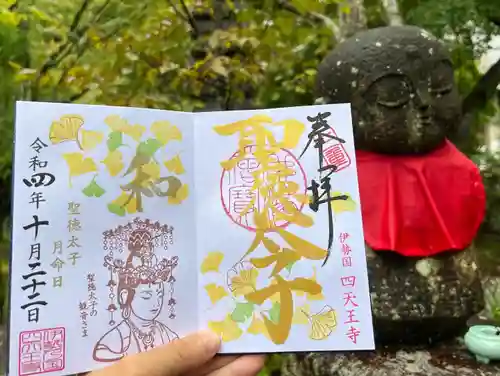 奉拝
聖徳太子
伊勢国 四天王寺
和
聖徳太子
月命日
聖徳太子の
観音さま
令和四年十月二十二日